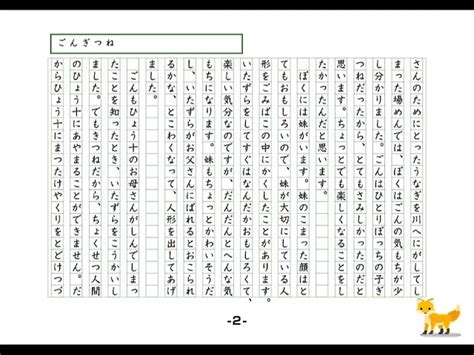 ごんぎつね
さんのためにとったうなぎを川へにがしてし
まった場めんでは、ぼくはごんの気もちが少
し分かりました。ごんはひとりぼっちの子ぎ
つねだったから、とてもさみしかったのだと
思います。ちょっとでも楽しくなることをし
たかったんだと思います。
ぼくには妹がいます。妹のこまった顔はと
てもおもしろいので、妹が大切にしている人
形をごみばこの中にかくしたことがあります。
いたずらをしてすぐはなんだかおもしろくて、
楽しい気分なのですが、だんだんとへんな気
もちになります。妹もちょっとかわいそうだ
し、いたずらがお父さんにばれるとおこられ
るかな、とこわくなって、人形を出してあげ
ました。
ごんもひょう十のお母さんがしんでしまっ
たことを知ったとき、いたずらをこうかいし
ました。でもきつねだから、ちょくせつ人間
のひょう十にあやまることができません。だ
からひょう十にまったけやくりをとどけつづ
-2-